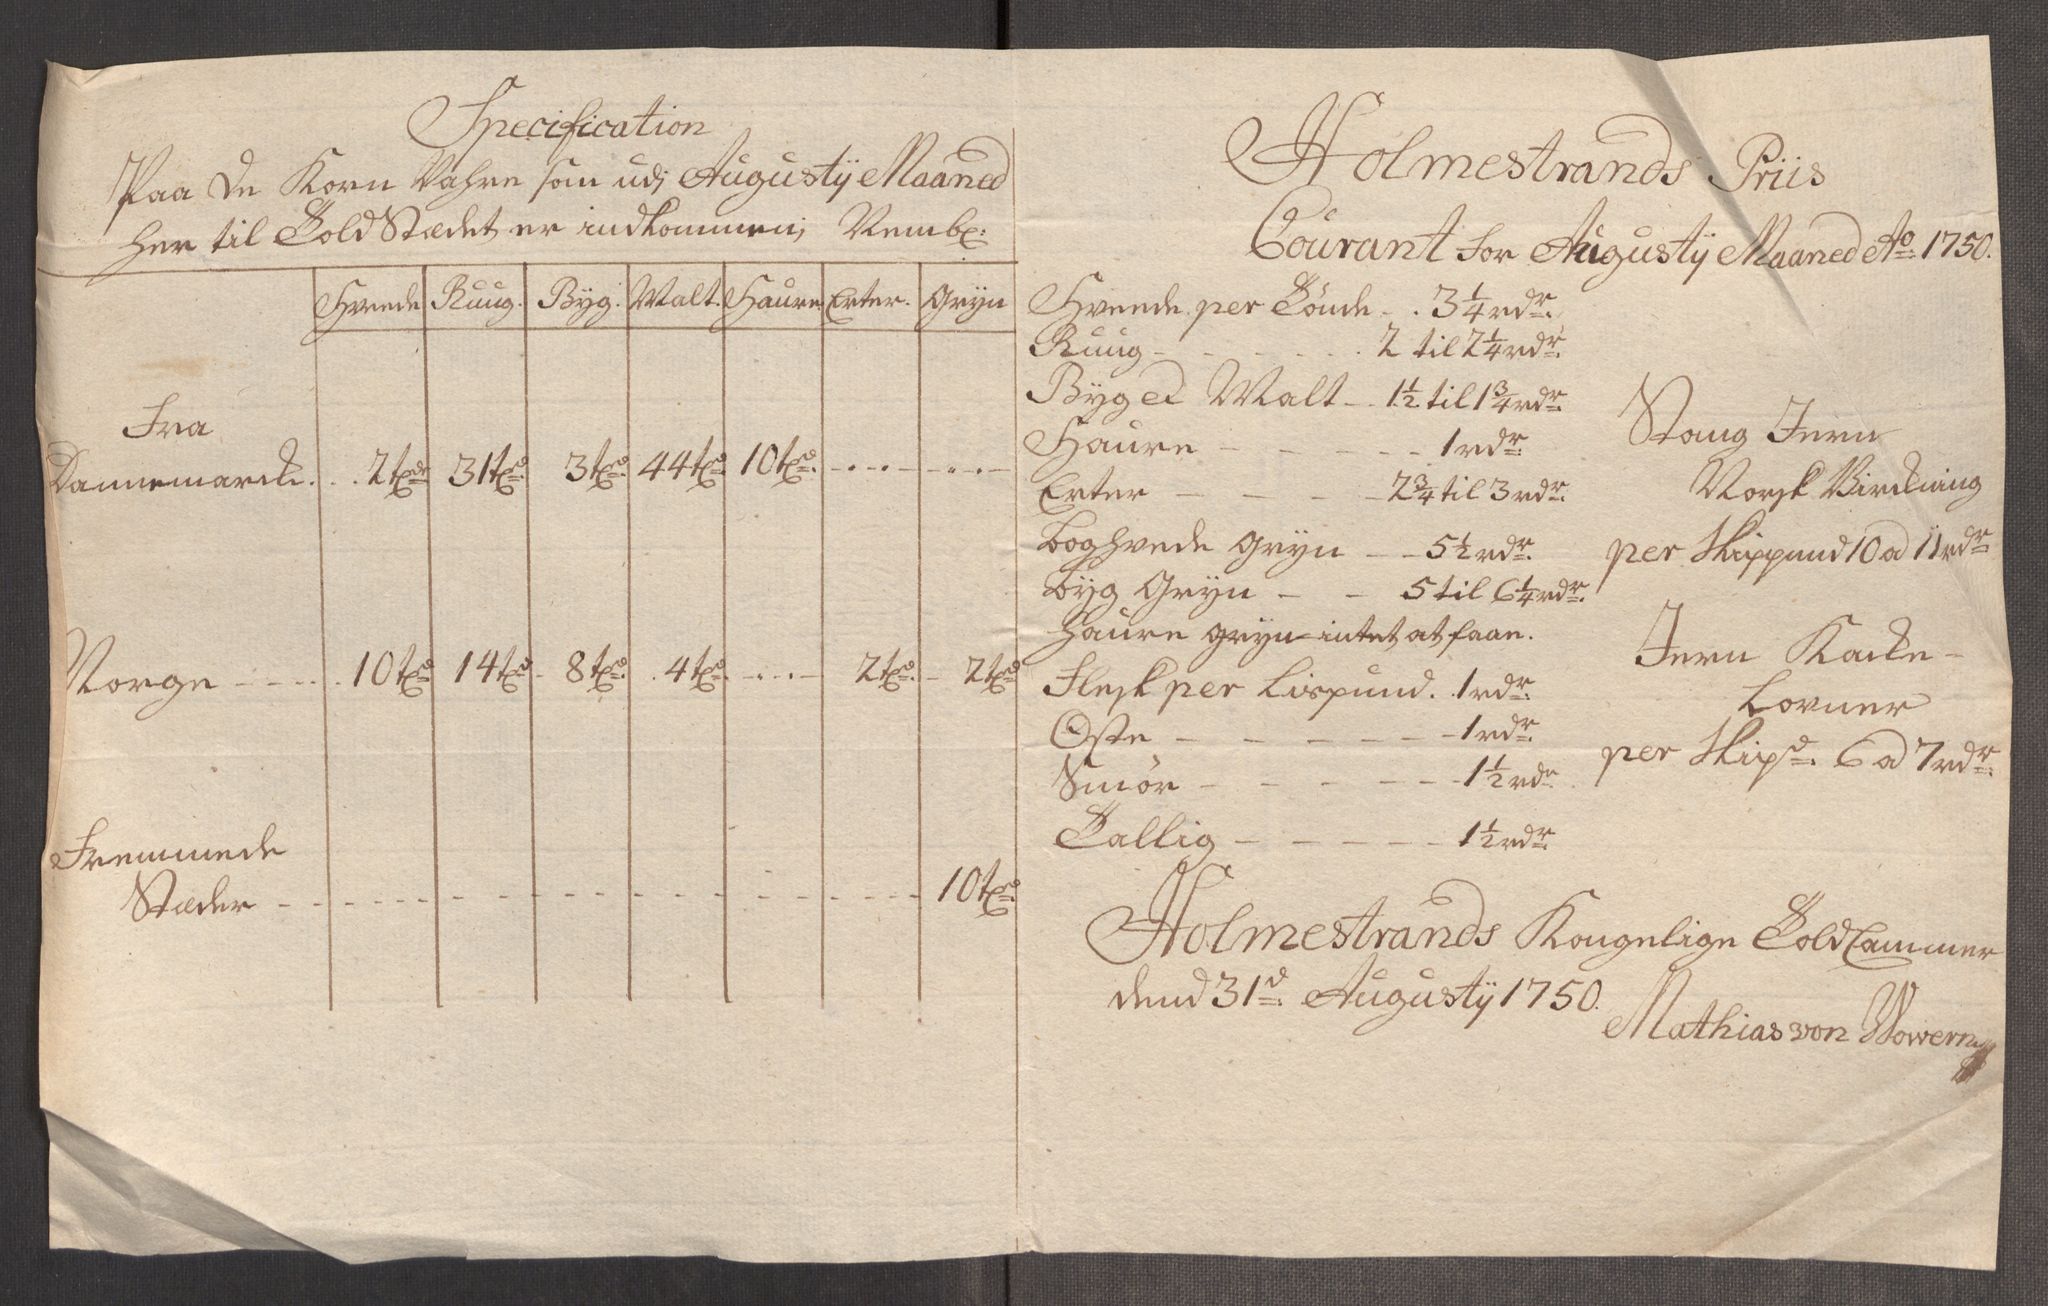 Specification
Paa de Korn Vahre som udi Augustÿ Maaned
her til Told Stædet er indkommen; Nembl:
Hvede Ruug. Bÿg. Malt. Haure Erter. Grÿn
Fra
Dannemarck. 2 td. 31 td. 3 td. 44 td. 10 td.
Norge 10 td. 14 td. 8 td. 4 td. 2 td. 2 td.
Fremmede
Stæder 10 td.
Holmestrands Priis
Courant for Augustÿ Maaned Ao. 1750.
Hvede per Tönde 3¼ rdr.
Ruug 2 til 2¼ rdr.
Bÿg ed Malt 1½ til 1¾ rdr.
Haure 1 rdr.
Erter 2¾ til 3 rdr.
boghvede Grÿn 5½ rdr.
bÿg Grÿn 5 til 6¼ rdr.
haure grÿn intet at faae.
Flesk per Lispund. 1 rdr.
Oste 1 rdr.
Smör 1½ rdr.
Tallig 1½ rdr.
Stang Jern
Norsk Virckning
per Skippund 10 a 11 rdr.
Jern Kacke-
Lovner
per Skipd. 6 a 7 rdr.
Holmestrands Kongelige Told Cammer
dend 31d. Augustÿ 1750.
Mathias von Wowern